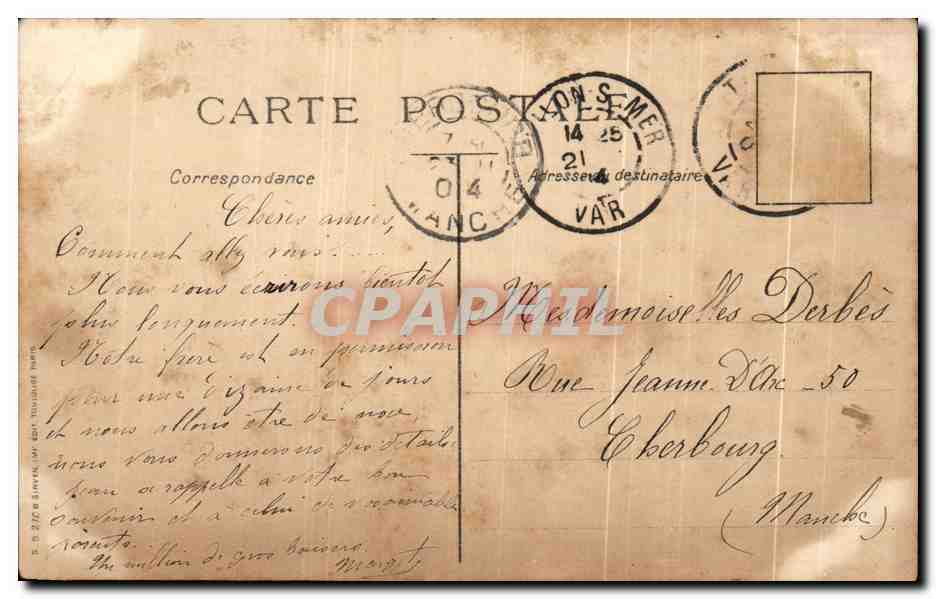 CARTE POSTALE
Correspondance
Adresse du destinataire
MANCHE
04
S-MER
14 25
21
4
VAR
Chères amies,
Comment allez vous.....
Nous vous écrirons bientôt
plus longuement.
Notre frère est en permission
pour une dizaine de jours
et nous allons être de noce,
nous vous donnerons des détails.
Jean se rappelle à votre bon
souvenir et à celui de vos aimables
parents.
Un million de gros baisers.
Mesdemoiselles Derbès
Rue Jeanne D'Arc - 50
Cherbourg
(Manche)
CPAPHIL
SIRVEN, IMP. ÉDIT. TOULOUSE PARIS